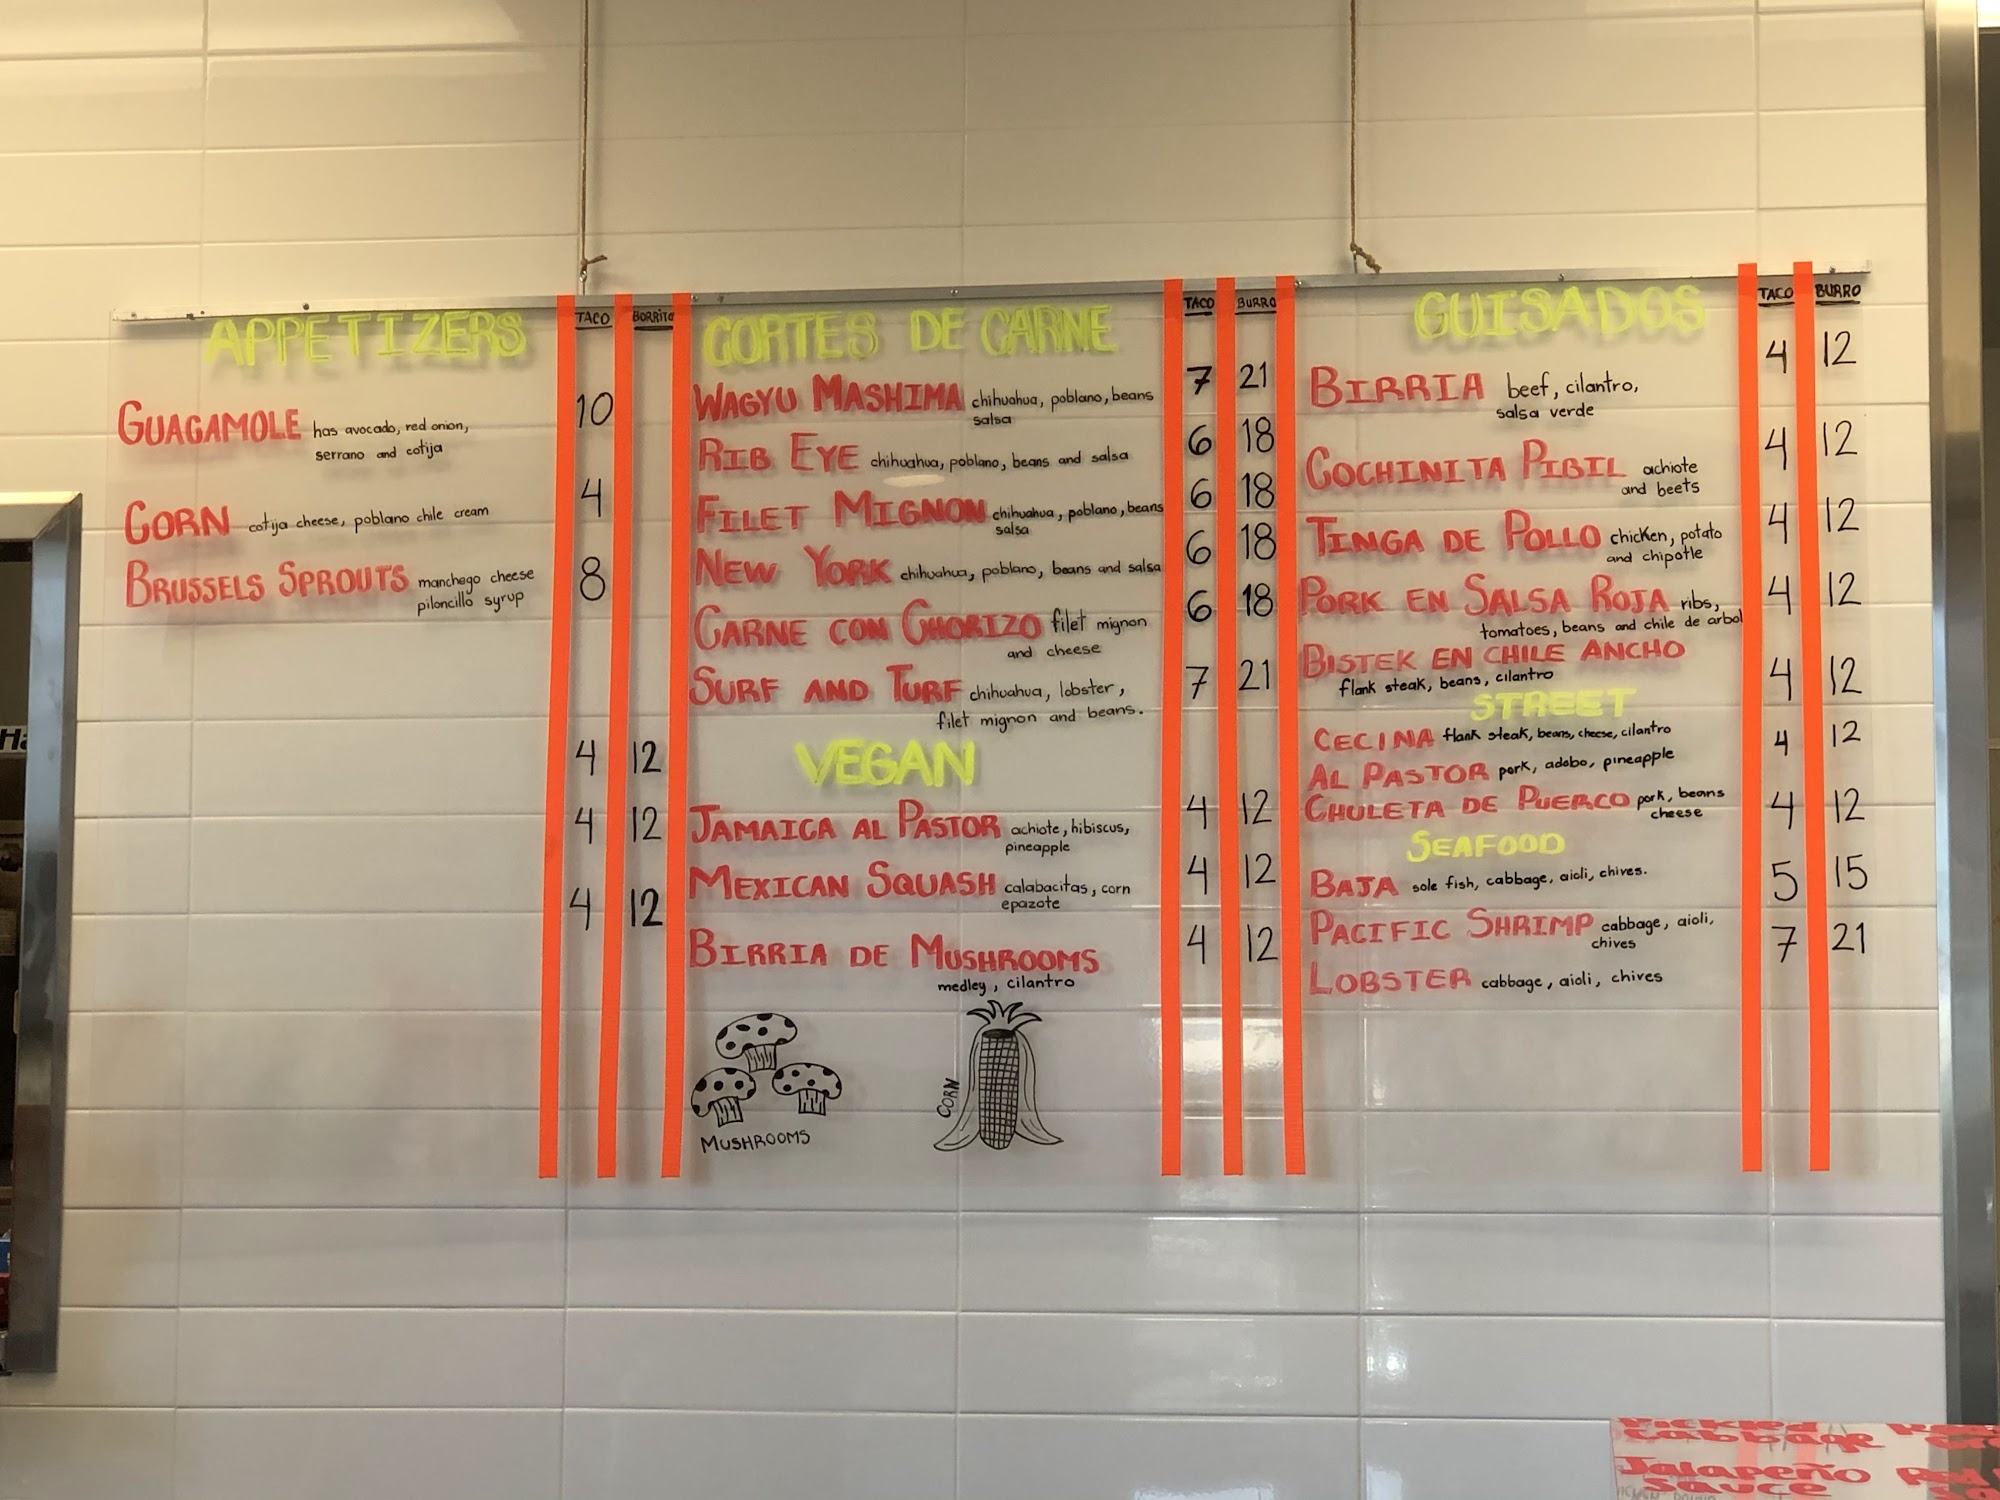 APPETIZERS
TACO
BORRITO
GUACAMOLE has avocado, red onion,
serrano and cotija
10
CORN cotija cheese, poblano chile cream
4
BRUSSELS SPROUTS manchego cheese
piloncillo syrup
8
4 12
4 12
4 12
CORTES DE CARNE
TACO
BURRO
WAGYU MASHIMA chihuahua, poblano, beans
salsa
7 21
RIB EYE chihuahua, poblano, beans and salsa
6 18
FILET MIGNON chihuahua, poblano, beans
salsa
6 18
NEW YORK chihuahua, poblano, beans and salsa
6 18
CARNE CON CHORIZO filet mignon
and cheese
6 18
SURF AND TURF chihuahua, lobster,
filet mignon and beans.
7 21
VEGAN
JAMAICA AL PASTOR achiote, hibiscus,
pineapple
4 12
MEXICAN SQUASH calabacitas, corn
epazote
4 12
BIRRIA DE MUSHROOMS
medley, cilantro
4 12
MUSHROOMS
CORN
GUISADOS
TACO
BURRO
BIRRIA beef, cilantro,
salsa verde
4 12
COCHINITA PIBIL achiote
and beets
4 12
TINGA DE POLLO chicken, potato
and chipotle
4 12
PORK EN SALSA ROJA ribs,
tomatoes, beans and chile de arbol
4 12
BISTEK EN CHILE ANCHO
flank steak, beans, cilantro
4 12
STREET
CECINA flank steak, beans, cheese, cilantro
4 12
AL PASTOR pork, adobo, pineapple
CHULETA DE PUERCO pork, beans
cheese
4 12
SEAFOOD
BAJA sole fish, cabbage, aioli, chives.
5 15
PACIFIC SHRIMP cabbage, aioli,
chives
7 21
LOBSTER cabbage, aioli, chives
Pickled
Cabbage
Jalapeño
Sauce